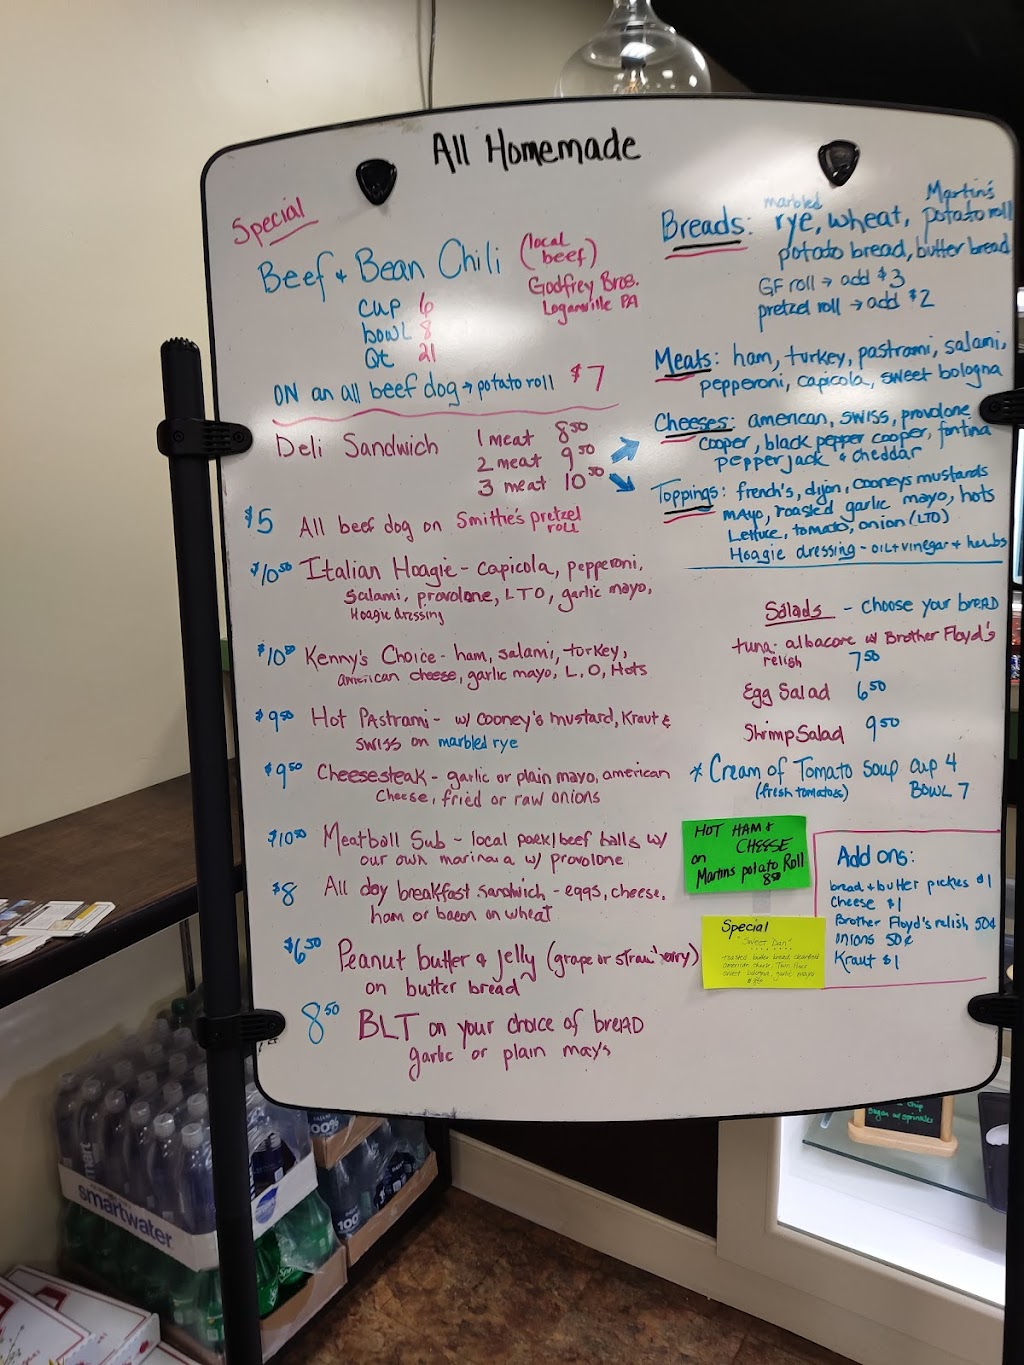 All Homemade
Special
Beef + Bean Chili (local beef)
Godfrey Bros.
Loganville PA
cup 6
bowl 8
Qt 21
ON an all beef dog → potato roll $7
Deli Sandwich
1 meat 8.50
2 meat 9.50
3 meat 10.50
$5 All beef dog on Smittie's pretzel
ROLL
$10.50 Italian Hoagie - capicola, pepperoni,
salami, provolone, LTO, garlic mayo,
Hoagie dressing
$10.50 Kenny's Choice - ham, salami, turkey,
american cheese, garlic mayo, L.O, Hots
$9.50 Hot Pastrami - w/ cooney's mustard, Kraut &
swiss on marbled rye
$9.50 Cheesesteak - garlic or plain mayo, american
cheese, fried or raw onions
$10.50 Meatball Sub - local pork/beef balls w/
our own marinara w/ provolone
$8 All day breakfast sandwich - eggs, cheese,
ham or bacon on wheat
$6.50 Peanut butter & jelly (grape or strawberry)
on butter bread
8.50 BLT on your choice of breAD
garlic or plain mayo
marbled Martin's
Breads: rye, wheat, potato roll
potato bread, butter bread
GF roll → add $3
pretzel roll → add $2
Meats: ham, turkey, pastrami, salami,
pepperoni, capicola, sweet bologna
Cheeses: american, swiss, provolone
cooper, black pepper cooper, fontina
pepper jack & cheddar
Toppings: french's, dijon, cooneys mustards
mAyo, roasted garlic mayo, hots
Lettuce, tomato, onion (LTO)
Hoagie dressing - oil + vinegar + herbs
Salads - choose your breAD
tuna - albacore w/ Brother Floyd's
relish 7.50
Egg Salad 6.50
Shrimp Salad 9.50
* Cream of Tomato soup cup 4
(fresh tomatoes) BOWL 7
HOT HAM &
CHEESE
on
Martins potato Roll
8.50
Special
"Sweet Dan"
Add ons:
bread + butter pickles $1
Cheese $1
Brother Floyd's relish 50¢
onions 50¢
Kraut $1
smartwater
100%
100
chip
sugar w/ sprinkles